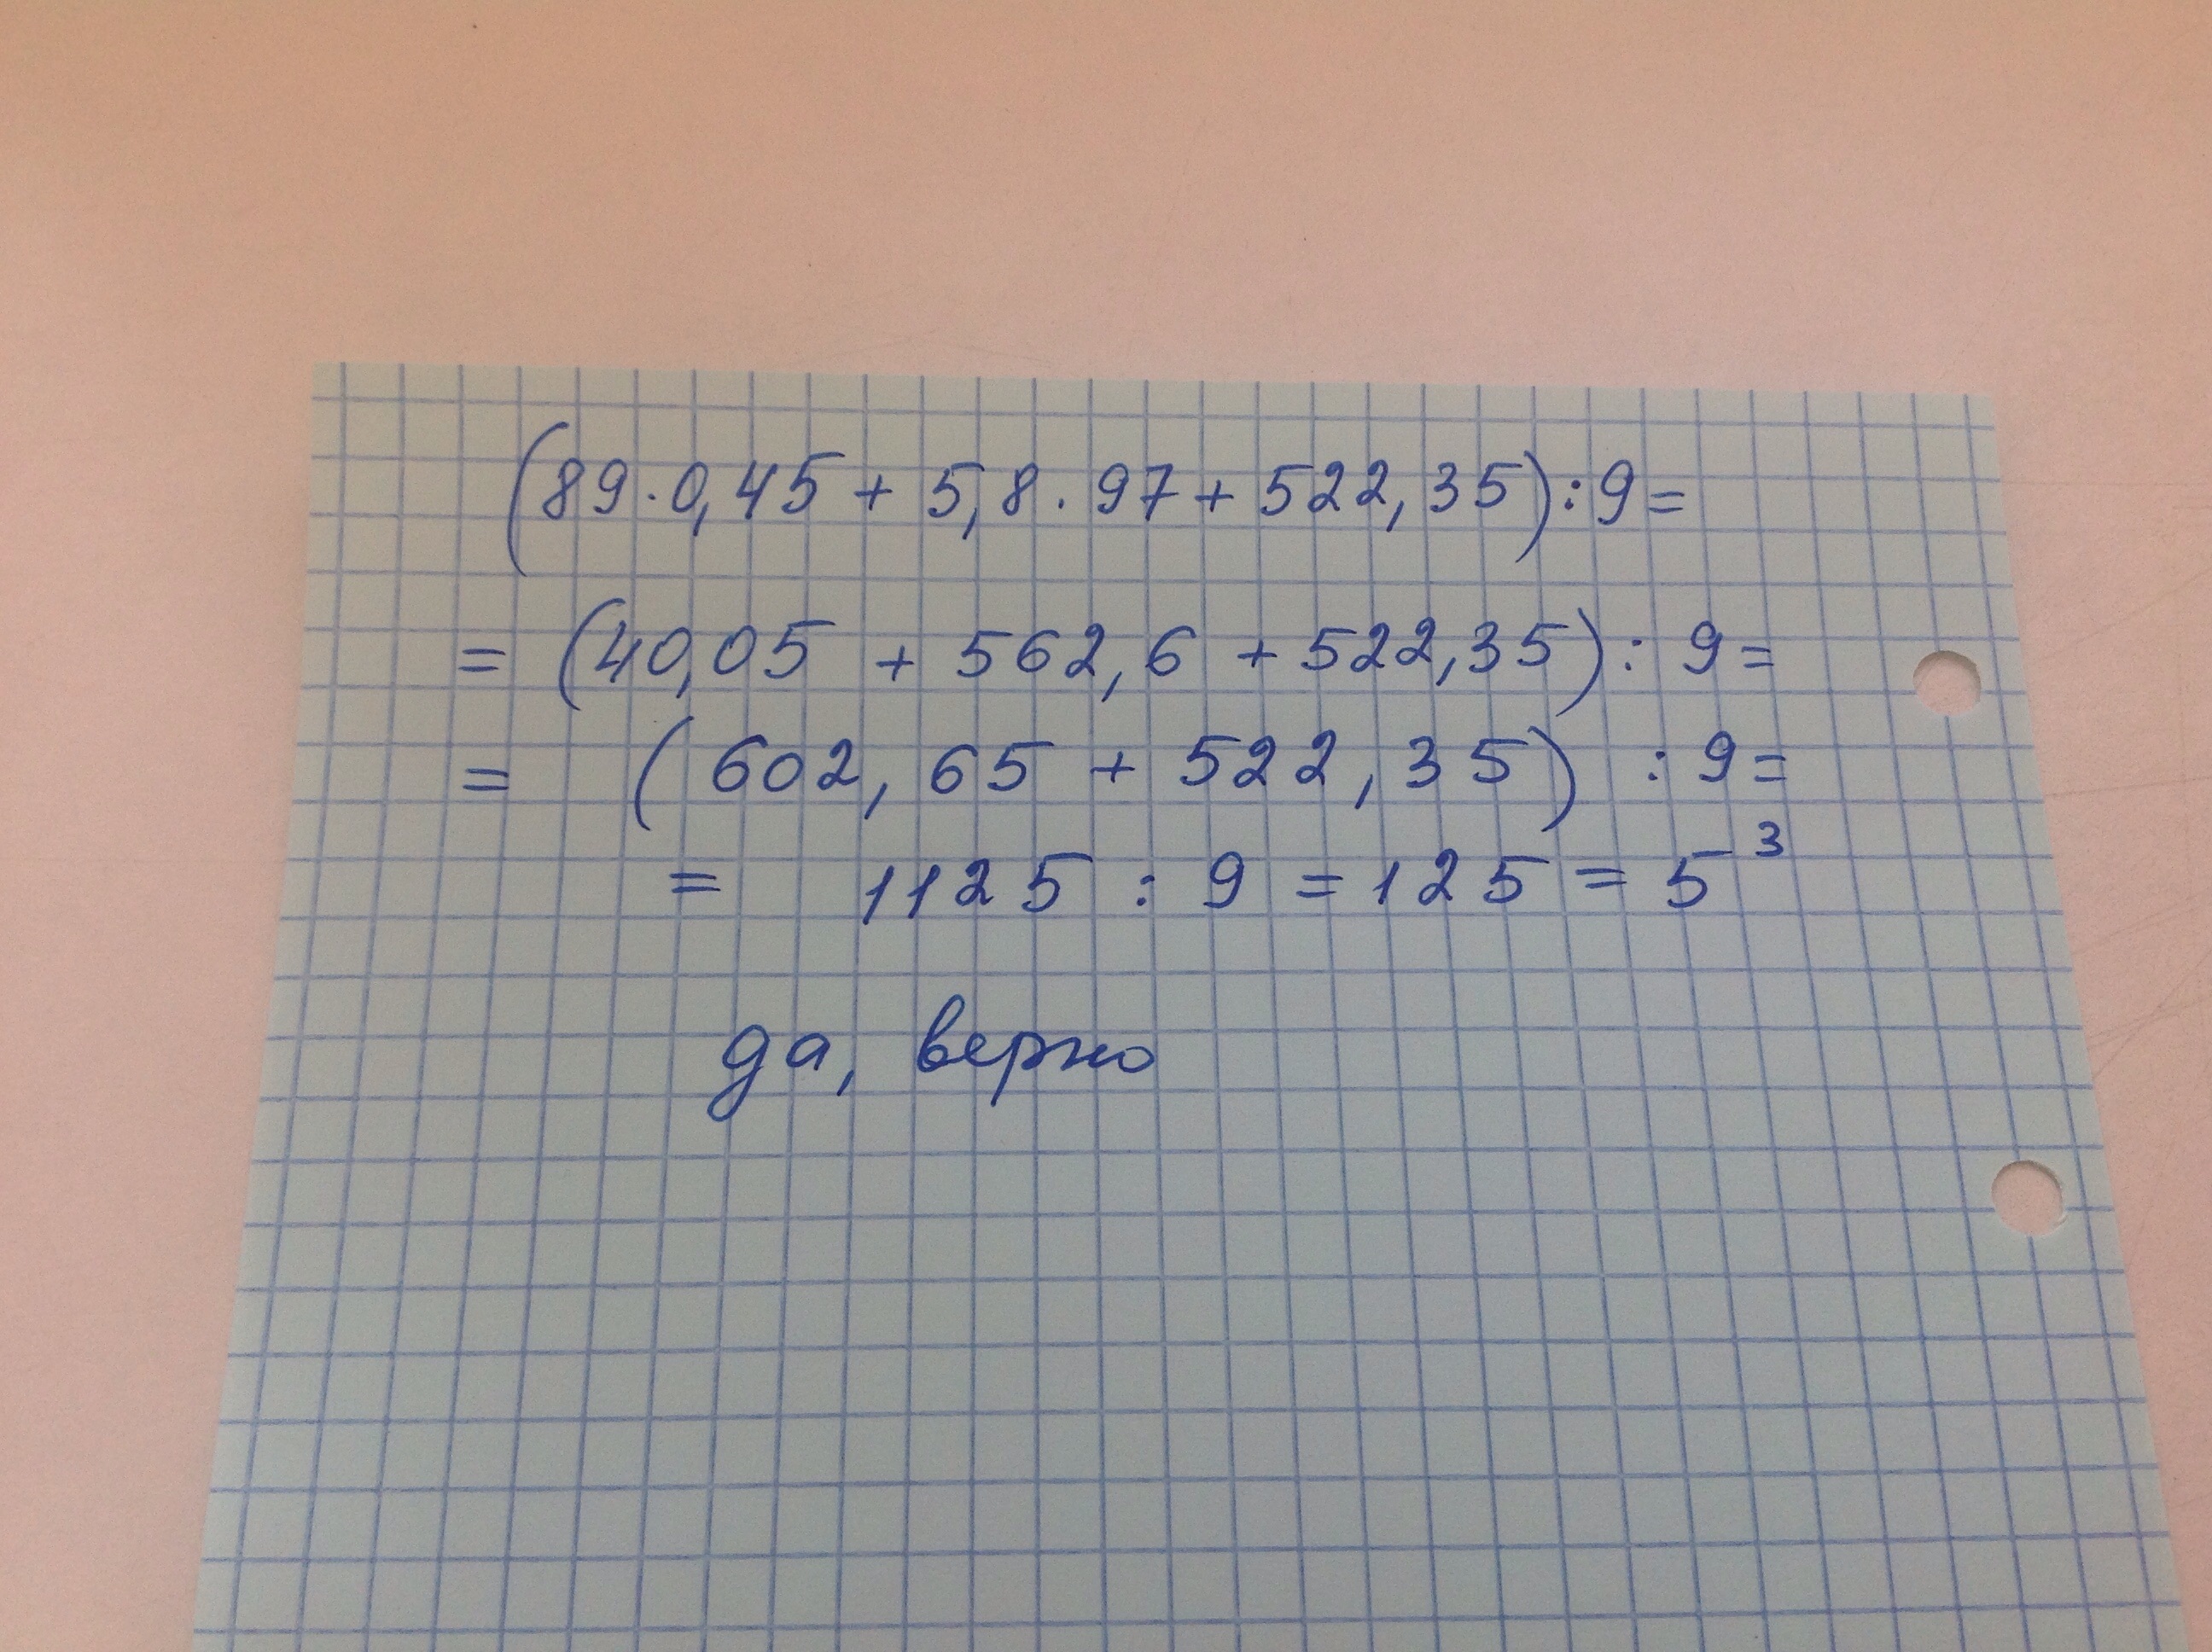 (89·0,45 + 5,8·97 + 522,35):9=
= (40,05 + 562,6 + 522,35): 9=
= (602,65 + 522,35) : 9=
= 1125 : 9 = 125 = 5³
да, верно